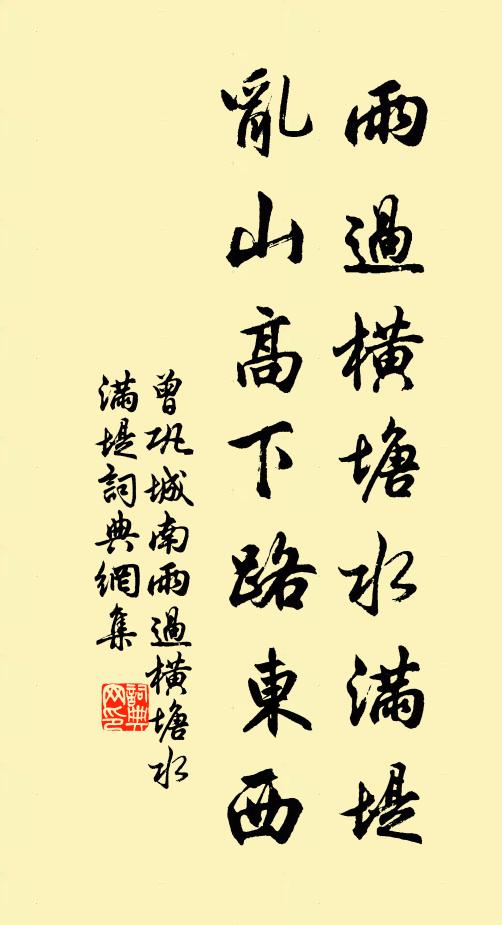 雨過橫塘水滿堤
亂山高下路東西
曾巩城南雨過橫塘水
滿堤詞典網集
詞典
网印